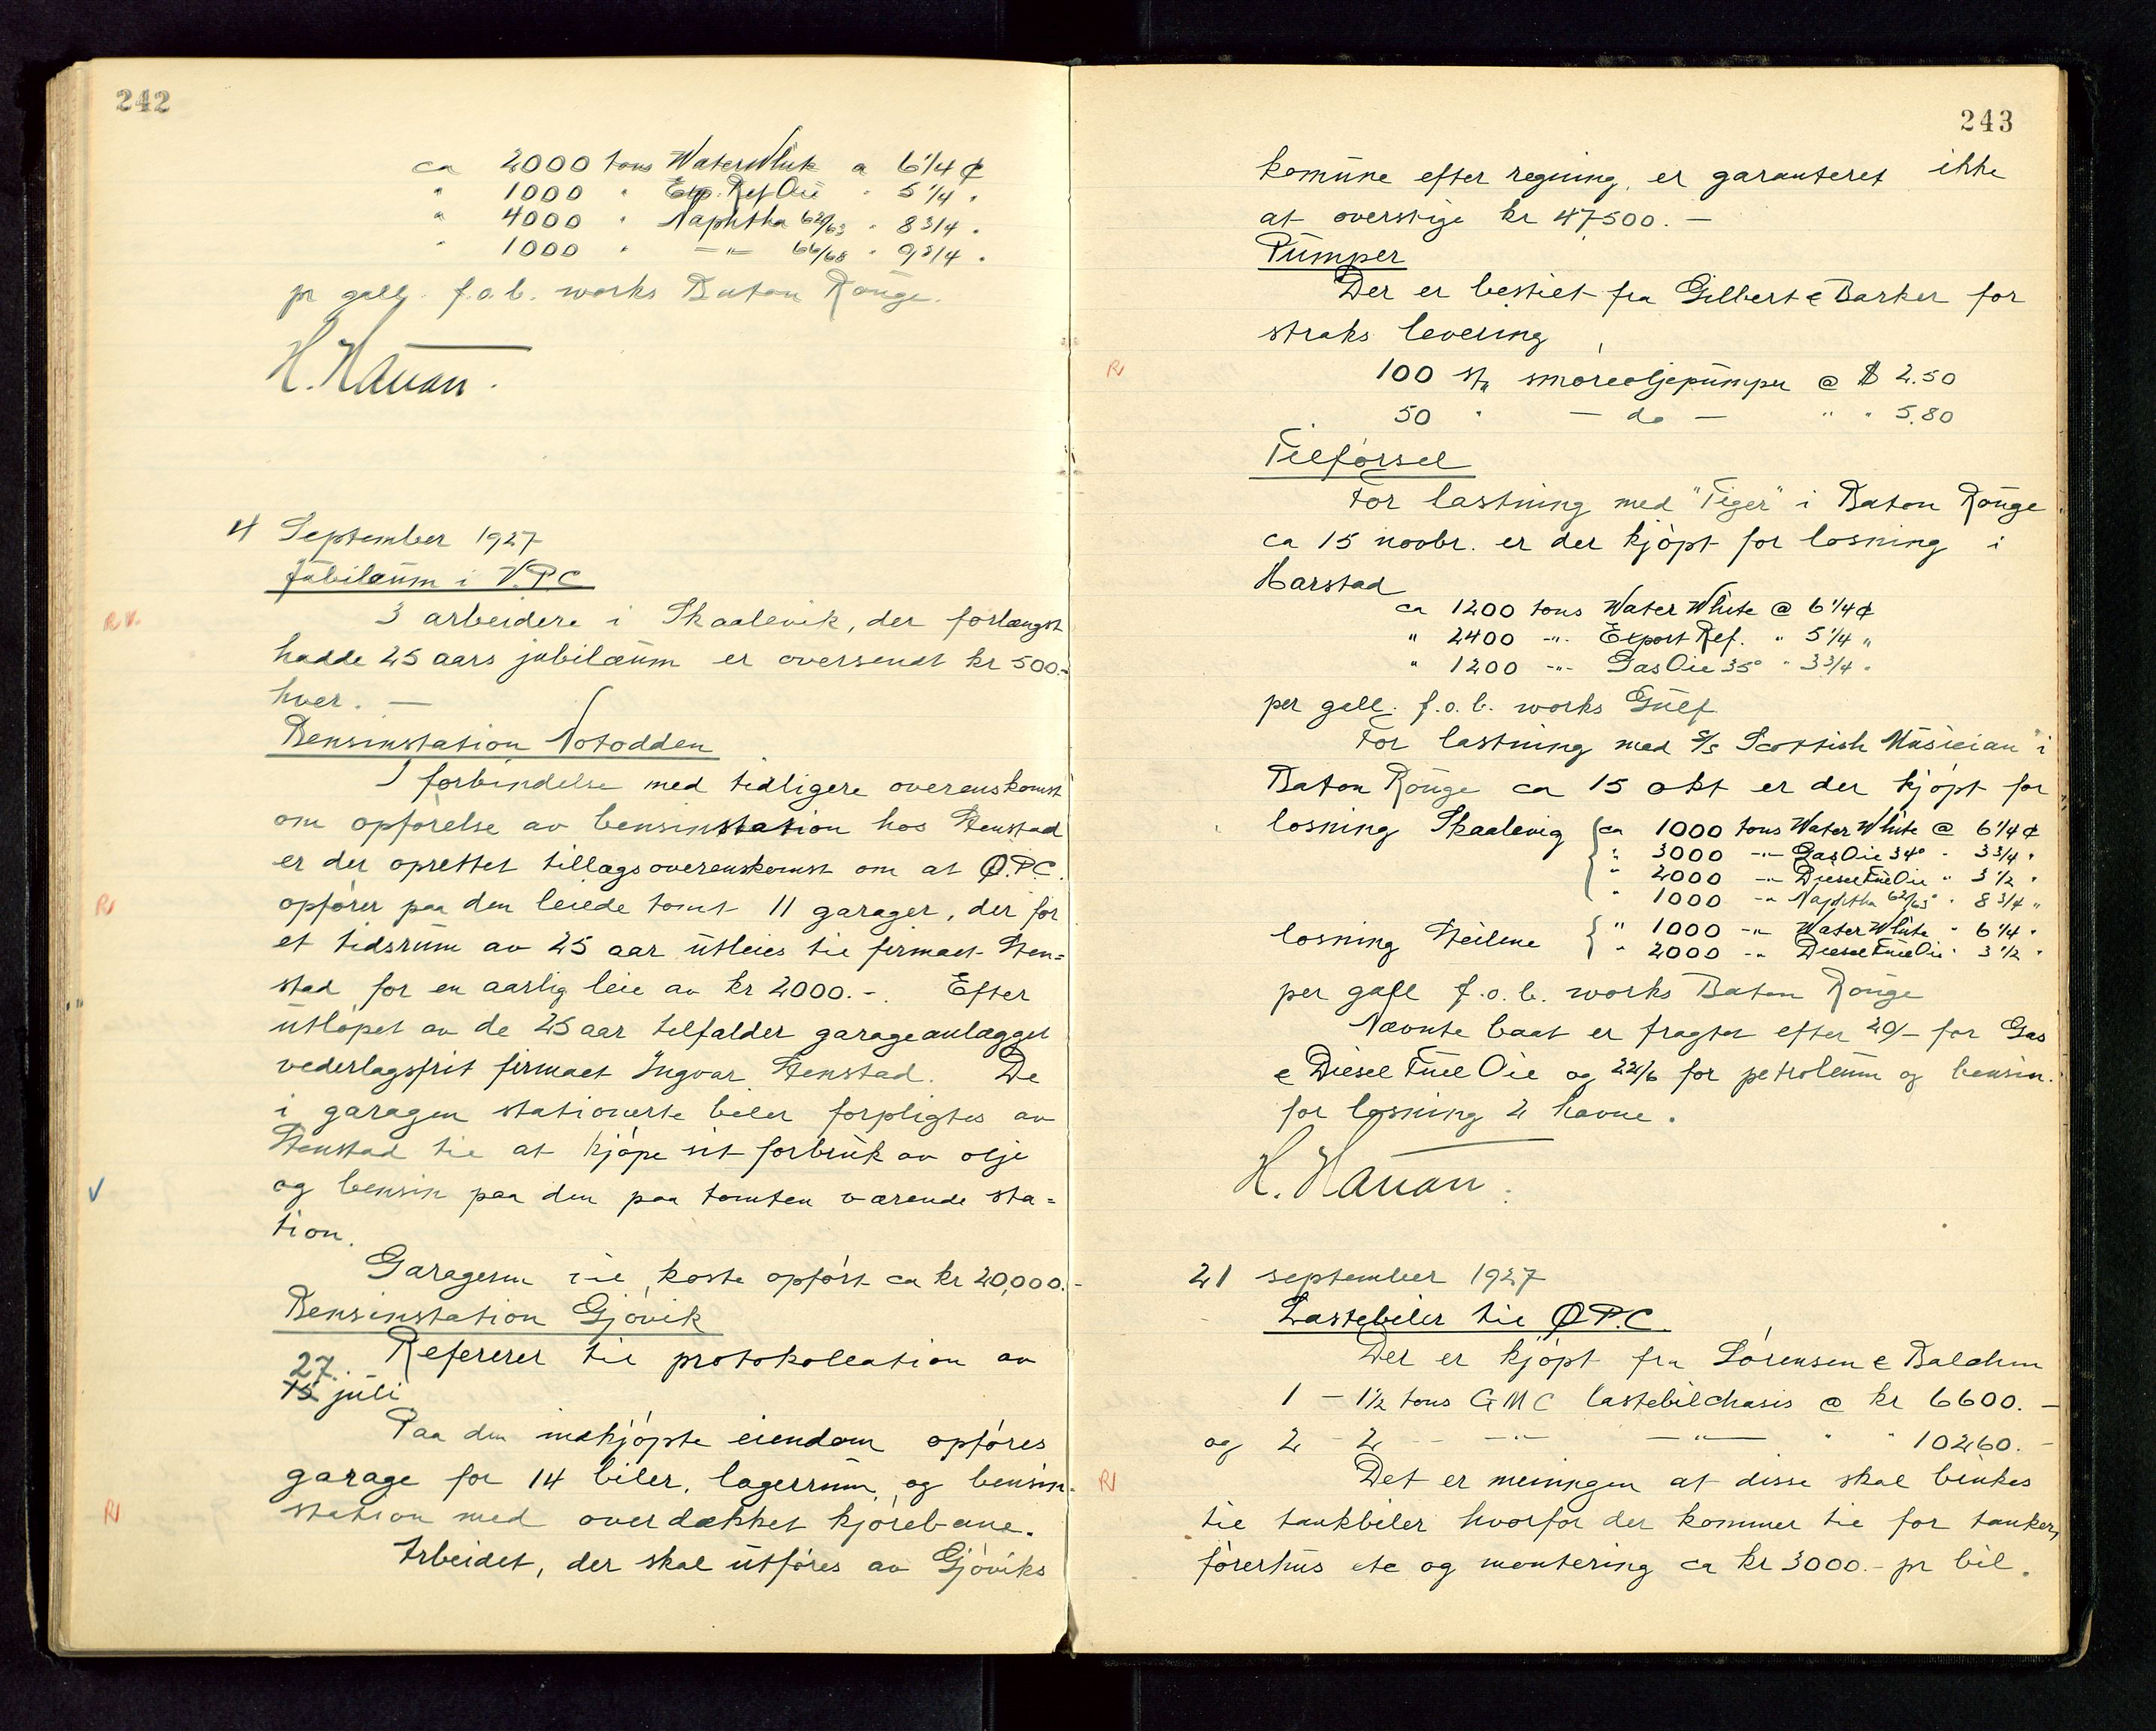 242
ca 2000 tons Water White a 6 1/4 ¢
" 1000 " Exp. Ref Oil " 5 1/4 "
" 4000 " Naphtha 62/63 " 8 3/4 "
" 1000 " —"— 66/68 " 9 3/4 "
pr gall. f.o.b. works Baton Rouge.
H. Hauan.
4 September 1927
Jubilæum i V.P.C
3 arbeidere i Skaalevik, der forlængst
hadde 25 aars jubilæum er oversendt kr 500.-
hver. —
Bensinstation Notodden
I forbindelse med tidligere overenskomst
om opførelse av bensinstation hos Stenstad
er der oprettet tillægsoverenskomst om at Ø.P.C.
opfører paa den leiede tomt 11 garager, der for
et tidsrum av 25 aar utleies til firmaet Sten=
stad for en aarlig leie av kr 2000.-. Efter
utløpet av de 25 aar tilfalder garageanlægget
vederlagsfrit firmaet Ingvar Stenstad. De
i garagen stationerte biler forpligtes av
Stenstad til at kjøpe sit forbruk av olje
og bensin paa den paa tomten værende sta=
tion.
Garagerne vil koste opført ca kr 20,000.-
Bensinstation Gjøvik
Refererer til protokollation av
27.
15 juli
Paa den indkjøpte eiendom opføres
garage for 14 biler, lagerrum, og bensin-
station med overdækket kjørebane.
Arbeidet, der skal utføres av Gjøviks
243
komune efter regning, er garanteret ikke
at overstige kr 47500.—
Pumper
Der er bestilt fra Gilbert & Barker for
straks levering
100 st. smøreoljepumper @ $ 2.50
50 " — do — " " 5.80
Tilførsel
For lastning med "Tiger" i Baton Rouge
ca 15 novbr. er der kjøpt for losning i
Harstad
ca 1200 tons Water White @ 6 1/4 ¢
" 2400 —"— Export Ref. " 5 1/4 "
" 1200 —"— Gas Oil 35° " 3 3/4 "
per gall. f.o.b. works Gulf
For lastning med S/S Scottish Musician" i
Baton Rouge ca 15 okt er der kjøpt for
losning Skaalevig { ca 1000 tons Water White @ 6 1/4 ¢
" 3000 —"— Gas Oil 34° " 3 3/4 "
" 2000 —"— Diesel Fuel Oil " 3 1/2 "
" 1000 —"— Naphtha 62/63° " 8 3/4 "
losning Steilene { " 1000 —"— Water White " 6 1/4 "
" 2000 —"— Diesel Fuel Oil " 3 1/2 "
per gall f.o.b. works Baton Rouge
Nævnte baat er fragtet efter 20/- for Gas
& Diesel Fuel Oil og 22/6 for petroleum og bensin.
for losning 2 havne.
H. Hauan.
21 september 1927
Lastebiler til Ø.P.C.
Der er kjøpt fra Sørensen & Balchen
1 - 1 1/2 tons GMC lastebilchasis @ kr 6600.—
og 2 - 2 —"— —"— " " 10260.—
Det er meiningen at disse skal brukes
til tankbiler hvorfor der kommer til for tanker,
førerhus etc og montering ca kr 3000.- pr bil.